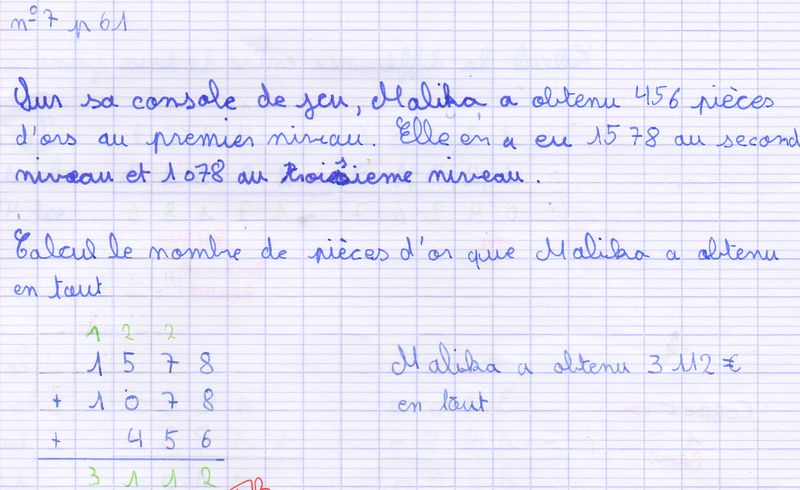 nº 7 p 61
Sur sa console de jeu, Malika a obtenu 456 pièces
d'ors au premier niveau. Elle en a eu 1578 au second
niveau et 1078 au troisième niveau.
Calcul le nombre de pièces d'or que Malika a obtenu
en tout
1 2 2
1 5 7 8
+ 1 0 7 8
+ 4 5 6
3 1 1 2
Malika a obtenu 3 112 €
en tout